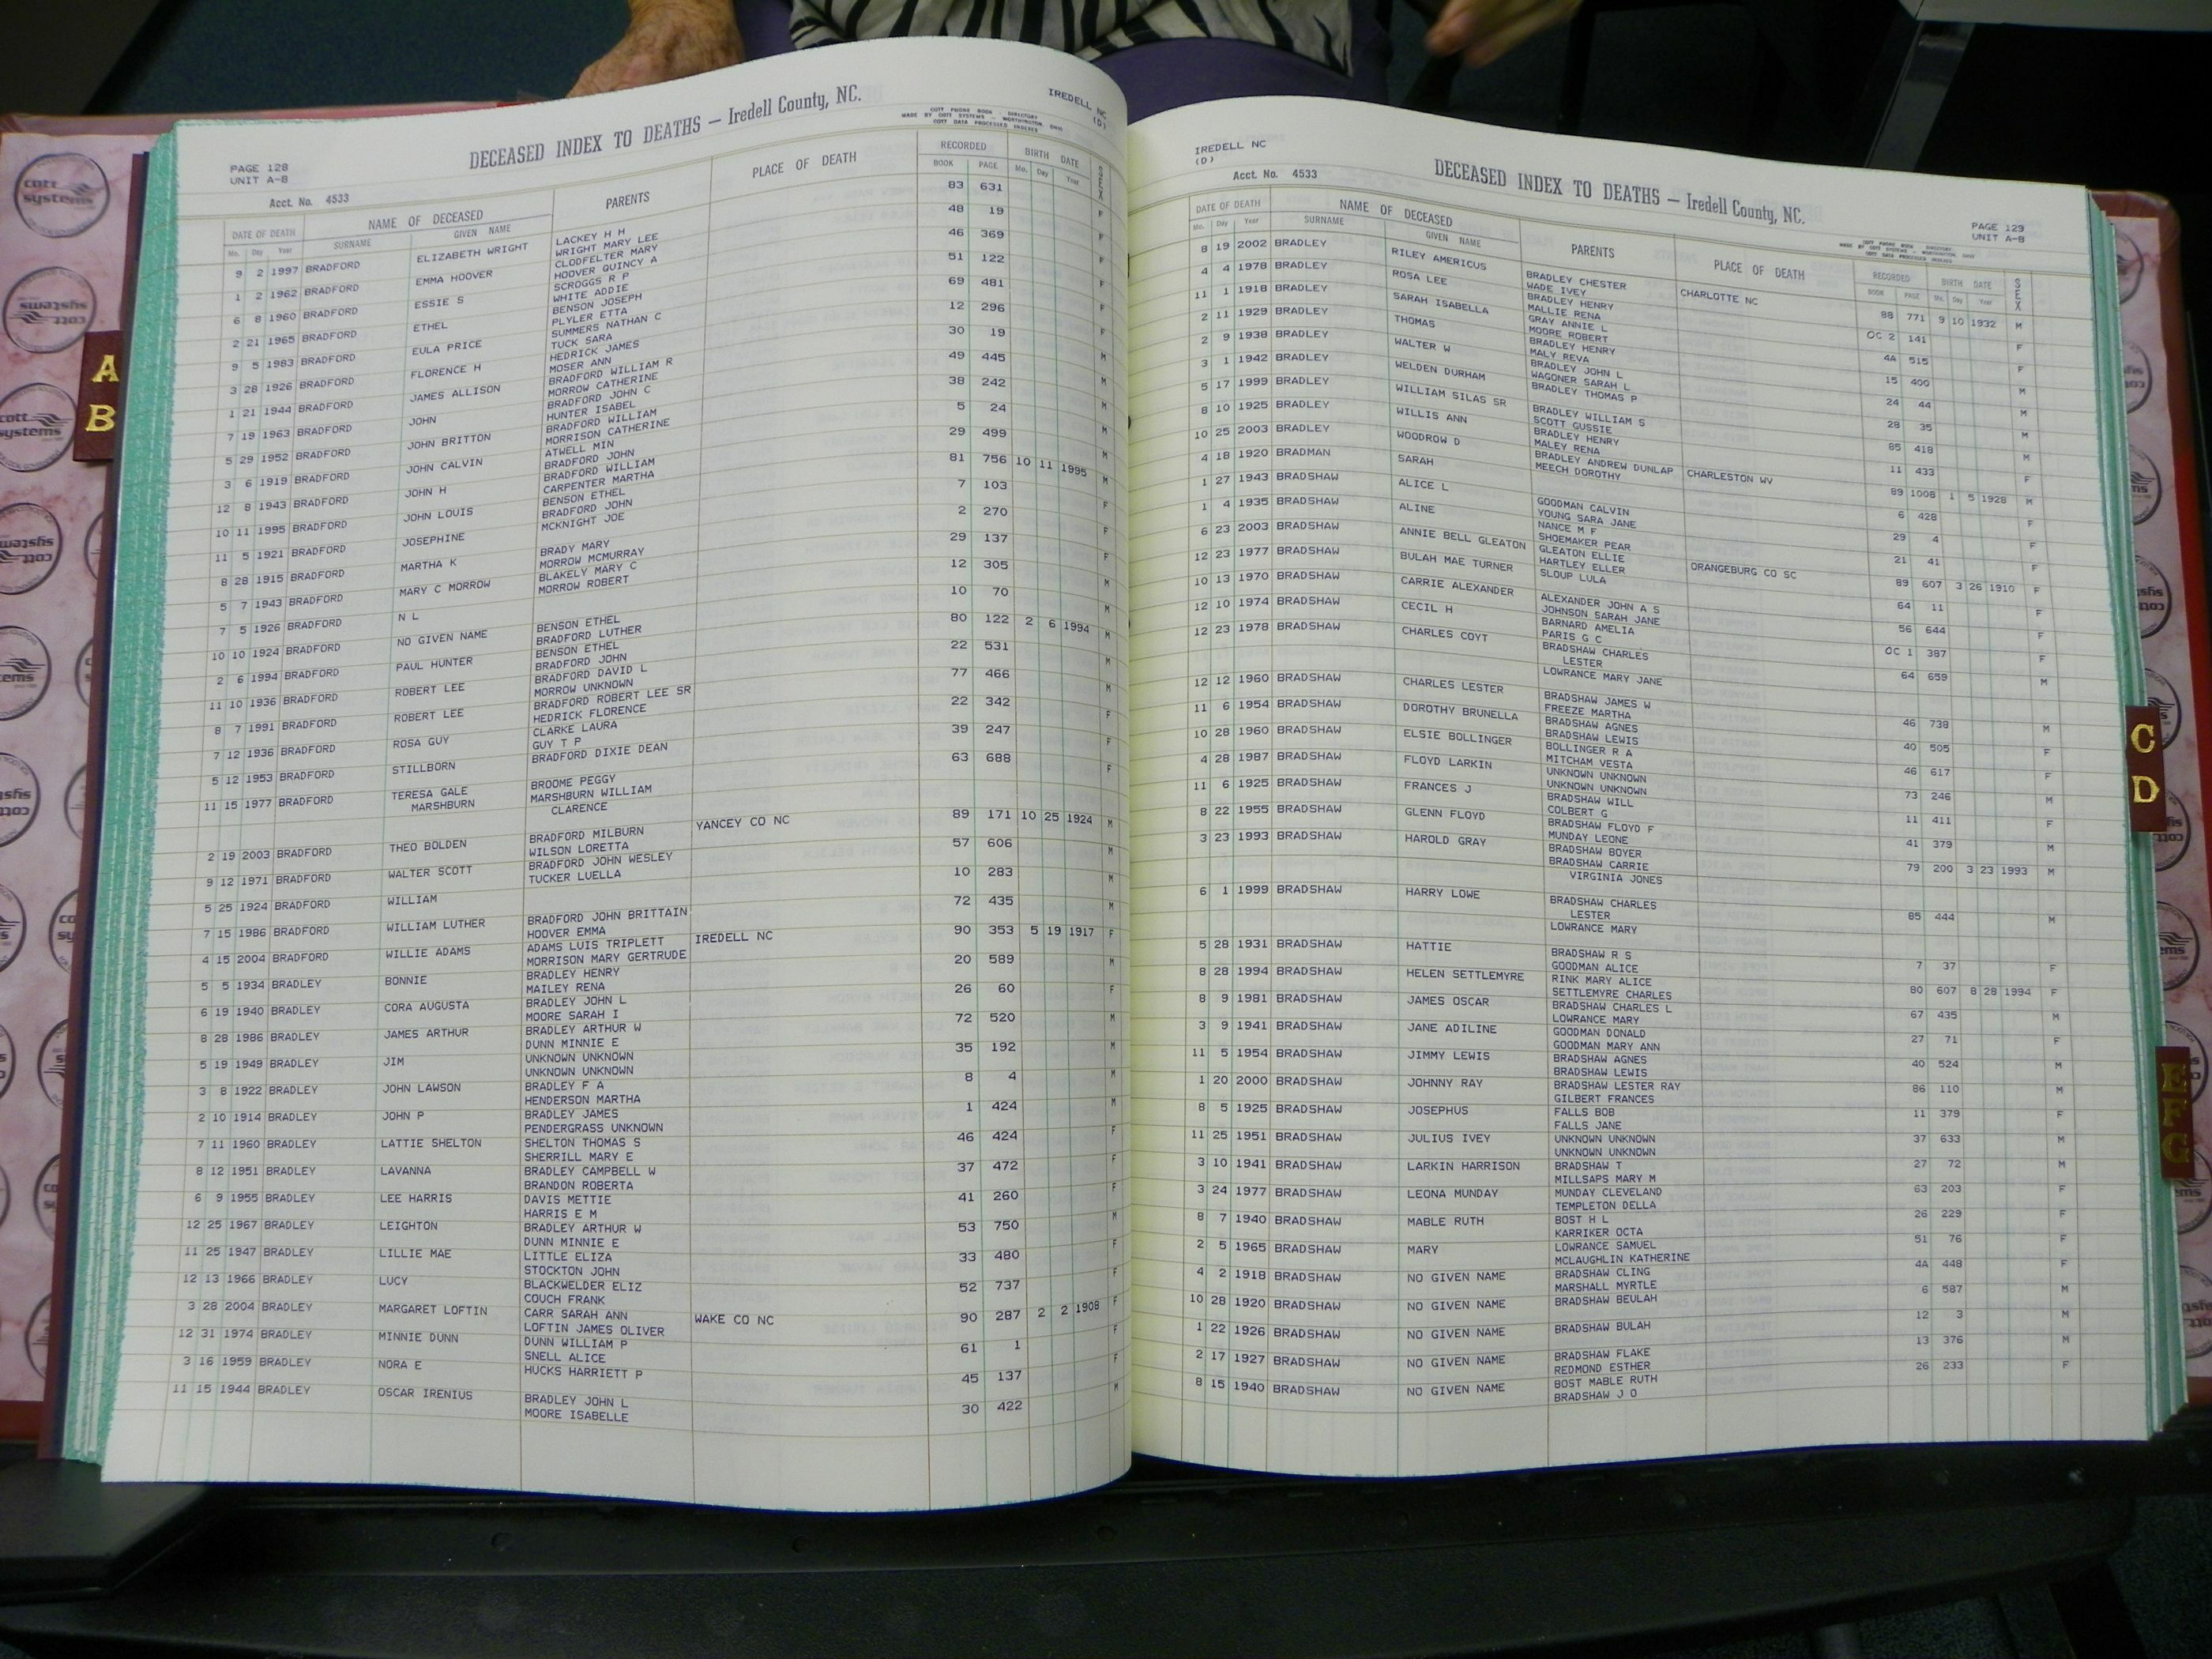 PAGE 128
UNIT A-B
Acct. No. 4533
DECEASED INDEX TO DEATHS — Iredell County, NC.
MADE BY COTT SYSTEMS - WORTHINGTON, OHIO
IREDELL NC
(D)
DATE OF DEATH NAME OF DECEASED PARENTS PLACE OF DEATH RECORDED BIRTH DATE SEX
Mo. Day Year SURNAME GIVEN NAME BOOK PAGE Mo. Day Year
9 2 1997 BRADFORD ELIZABETH WRIGHT LACKEY H H 83 631 F
WRIGHT MARY LEE
1 2 1962 BRADFORD EMMA HOOVER CLODFELTER MARY 48 19 F
HOOVER QUINCY A
6 8 1960 BRADFORD ESSIE S SCROGGS R P 46 369 F
WHITE ADDIE
2 21 1965 BRADFORD ETHEL BENSON JOSEPH 51 122 F
PLYLER ETTA
9 5 1983 BRADFORD EULA PRICE SUMMERS NATHAN C 69 481 F
TUCK SARA
3 28 1926 BRADFORD FLORENCE H HEDRICK JAMES 12 296 F
MOSER ANN
1 21 1944 BRADFORD JAMES ALLISON BRADFORD WILLIAM R 30 19 M
MORROW CATHERINE
7 19 1963 BRADFORD JOHN BRADFORD JOHN C 49 445 M
HUNTER ISABEL
5 29 1952 BRADFORD JOHN BRITTON BRADFORD WILLIAM 38 242 M
MORRISON CATHERINE
3 6 1919 BRADFORD JOHN CALVIN ATWELL MIN 5 24 M
BRADFORD JOHN
12 8 1943 BRADFORD JOHN H BRADFORD WILLIAM 29 499 M
CARPENTER MARTHA
10 11 1995 BRADFORD JOHN LOUIS BENSON ETHEL 81 756 10 11 1995
BRADFORD JOHN
11 5 1921 BRADFORD JOSEPHINE MCKNIGHT JOE 7 103 F
8 28 1915 BRADFORD MARTHA K BRADY MARY 2 270 F
MORROW MCMURRAY
5 7 1943 BRADFORD MARY C MORROW BLAKELY MARY C 29 137 F
MORROW ROBERT
7 5 1926 BRADFORD N L 12 305 M
10 10 1924 BRADFORD NO GIVEN NAME BENSON ETHEL 10 70 M
BRADFORD LUTHER
2 6 1994 BRADFORD PAUL HUNTER BENSON ETHEL 80 122 2 6 1994 M
BRADFORD JOHN
11 10 1936 BRADFORD ROBERT LEE BRADFORD DAVID L 22 531 M
MORROW UNKNOWN
8 7 1991 BRADFORD ROBERT LEE BRADFORD ROBERT LEE SR 77 466 M
HEDRICK FLORENCE
7 12 1936 BRADFORD ROSA GUY CLARKE LAURA 22 342 F
GUY T P
5 12 1953 BRADFORD STILLBORN BRADFORD DIXIE DEAN 39 247 F
11 15 1977 BRADFORD TERESA GALE BROOME PEGGY 63 688 F
MARSHBURN MARSHBURN WILLIAM
CLARENCE
2 19 2003 BRADFORD THEO BOLDEN BRADFORD MILBURN YANCEY CO NC 89 171 10 25 1924 M
WILSON LORETTA
9 12 1971 BRADFORD WALTER SCOTT BRADFORD JOHN WESLEY 57 606 M
TUCKER LUELLA
5 25 1924 BRADFORD WILLIAM 10 283 M
7 15 1986 BRADFORD WILLIAM LUTHER BRADFORD JOHN BRITTAIN 72 435 M
HOOVER EMMA
4 15 2004 BRADFORD WILLIE ADAMS ADAMS LUIS TRIPLETT IREDELL NC 90 353 5 19 1917 F
MORRISON MARY GERTRUDE
5 5 1934 BRADLEY BONNIE BRADLEY HENRY 20 589 M
MAILEY RENA
6 19 1940 BRADLEY CORA AUGUSTA BRADLEY JOHN L 26 60 F
MOORE SARAH I
8 28 1986 BRADLEY JAMES ARTHUR BRADLEY ARTHUR W 72 520 M
DUNN MINNIE E
5 19 1949 BRADLEY JIM UNKNOWN UNKNOWN 35 192 M
UNKNOWN UNKNOWN
3 8 1922 BRADLEY JOHN LAWSON BRADLEY F A 8 4 M
HENDERSON MARTHA
2 10 1914 BRADLEY JOHN P BRADLEY JAMES 1 424 M
PENDERGRASS UNKNOWN
7 11 1960 BRADLEY LATTIE SHELTON SHELTON THOMAS S 46 424 F
SHERRILL MARY E
8 12 1951 BRADLEY LAVANNA BRADLEY CAMPBELL W 37 472 F
BRANDON ROBERTA
6 9 1955 BRADLEY LEE HARRIS DAVIS METTIE 41 260 F
HARRIS E M
12 25 1967 BRADLEY LEIGHTON BRADLEY ARTHUR W 53 750 M
DUNN MINNIE E
11 25 1947 BRADLEY LILLIE MAE LITTLE ELIZA 33 480 F
STOCKTON JOHN
12 13 1966 BRADLEY LUCY BLACKWELDER ELIZ 52 737 F
COUCH FRANK
3 28 2004 BRADLEY MARGARET LOFTIN CARR SARAH ANN WAKE CO NC 90 287 2 2 1908 F
LOFTIN JAMES OLIVER
12 31 1974 BRADLEY MINNIE DUNN DUNN WILLIAM P 61 1 F
SNELL ALICE
3 16 1959 BRADLEY NORA E HUCKS HARRIETT P 45 137 F
11 15 1944 BRADLEY OSCAR IRENIUS BRADLEY JOHN L 30 422 M
MOORE ISABELLE
IREDELL NC
(D)
Acct. No. 4533
DECEASED INDEX TO DEATHS — Iredell County, NC.
PAGE 129
UNIT A-B
DATE OF DEATH NAME OF DECEASED PARENTS PLACE OF DEATH RECORDED BIRTH DATE SEX
Mo. Day Year SURNAME GIVEN NAME BOOK PAGE Mo. Day Year
8 19 2002 BRADLEY RILEY AMERICUS BRADLEY CHESTER CHARLOTTE NC 88 771 9 10 1932 M
WADE IVEY
4 4 1978 BRADLEY ROSA LEE BRADLEY HENRY OC 2 141 F
MALLIE RENA
11 1 1918 BRADLEY SARAH ISABELLA GRAY ANNIE L 4A 515 F
MOORE ROBERT
2 11 1929 BRADLEY THOMAS BRADLEY HENRY 15 400 M
MALY REVA
2 9 1938 BRADLEY WALTER W BRADLEY JOHN L 24 44 M
WAGONER SARAH L
3 1 1942 BRADLEY WELDEN DURHAM BRADLEY THOMAS P 28 35 M
5 17 1999 BRADLEY WILLIAM SILAS SR BRADLEY WILLIAM S 85 418 M
SCOTT GUSSIE
8 10 1925 BRADLEY WILLIS ANN BRADLEY HENRY 11 433 F
MALEY RENA
10 25 2003 BRADLEY WOODROW D BRADLEY ANDREW DUNLAP CHARLESTON WV 89 1008 1 5 1928 M
MEECH DOROTHY
4 18 1920 BRADMAN SARAH 6 428 F
1 27 1943 BRADSHAW ALICE L GOODMAN CALVIN 29 4 F
YOUNG SARA JANE
1 4 1935 BRADSHAW ALINE NANCE M F 21 41 F
SHOEMAKER PEAR
6 23 2003 BRADSHAW ANNIE BELL GLEATON GLEATON ELLIE ORANGEBURG CO SC 89 607 3 26 1910 F
HARTLEY ELLER
12 23 1977 BRADSHAW BULAH MAE TURNER SLOUP LULA 64 11 F
10 13 1970 BRADSHAW CARRIE ALEXANDER ALEXANDER JOHN A S 56 644 F
JOHNSON SARAH JANE
12 10 1974 BRADSHAW CECIL H BARNARD AMELIA OC 1 387 F
PARIS G C
12 23 1978 BRADSHAW CHARLES COYT BRADSHAW CHARLES 64 659 M
LESTER
LOWRANCE MARY JANE
12 12 1960 BRADSHAW CHARLES LESTER BRADSHAW JAMES W 46 738 M
FREEZE MARTHA
11 6 1954 BRADSHAW DOROTHY BRUNELLA BRADSHAW AGNES 40 505 F
BRADSHAW LEWIS
10 28 1960 BRADSHAW ELSIE BOLLINGER BOLLINGER R A 46 617 F
MITCHAM VESTA
4 28 1987 BRADSHAW FLOYD LARKIN UNKNOWN UNKNOWN 73 246 M
UNKNOWN UNKNOWN
11 6 1925 BRADSHAW FRANCES J BRADSHAW WILL 11 411 F
COLBERT G
8 22 1955 BRADSHAW GLENN FLOYD BRADSHAW FLOYD F 41 379 M
MUNDAY LEONE
3 23 1993 BRADSHAW HAROLD GRAY BRADSHAW BOYER 79 200 3 23 1993 M
BRADSHAW CARRIE
VIRGINIA JONES
6 1 1999 BRADSHAW HARRY LOWE BRADSHAW CHARLES 85 444 M
LESTER
LOWRANCE MARY
5 28 1931 BRADSHAW HATTIE BRADSHAW R S 7 37 F
GOODMAN ALICE
8 28 1994 BRADSHAW HELEN SETTLEMYRE RINK MARY ALICE 80 607 8 28 1994 F
SETTLEMYRE CHARLES
8 9 1981 BRADSHAW JAMES OSCAR BRADSHAW CHARLES L 67 435 M
LOWRANCE MARY
3 9 1941 BRADSHAW JANE ADILINE GOODMAN DONALD 27 71 F
GOODMAN MARY ANN
11 5 1954 BRADSHAW JIMMY LEWIS BRADSHAW AGNES 40 524 M
BRADSHAW LEWIS
1 20 2000 BRADSHAW JOHNNY RAY BRADSHAW LESTER RAY 86 110 M
GILBERT FRANCES
8 5 1925 BRADSHAW JOSEPHUS FALLS BOB 11 379 F
FALLS JANE
11 25 1951 BRADSHAW JULIUS IVEY UNKNOWN UNKNOWN 37 633 M
UNKNOWN UNKNOWN
3 10 1941 BRADSHAW LARKIN HARRISON BRADSHAW T 27 72 M
MILLSAPS MARY M
3 24 1977 BRADSHAW LEONA MUNDAY MUNDAY CLEVELAND 63 203 F
TEMPLETON DELLA
8 7 1940 BRADSHAW MABLE RUTH BOST H L 26 229 F
KARRIKER OCTA
2 5 1965 BRADSHAW MARY LOWRANCE SAMUEL 51 76 F
MCLAUGHLIN KATHERINE
4 2 1918 BRADSHAW NO GIVEN NAME BRADSHAW CLING 4A 448 F
MARSHALL MYRTLE
10 28 1920 BRADSHAW NO GIVEN NAME BRADSHAW BEULAH 6 587 M
1 22 1926 BRADSHAW NO GIVEN NAME BRADSHAW BULAH 12 3 M
2 17 1927 BRADSHAW NO GIVEN NAME BRADSHAW FLAKE 13 376 M
REDMOND ESTHER
8 15 1940 BRADSHAW NO GIVEN NAME BOST MABLE RUTH 26 233 F
BRADSHAW J O
A
B
C
D
E
F
G
cott
systems